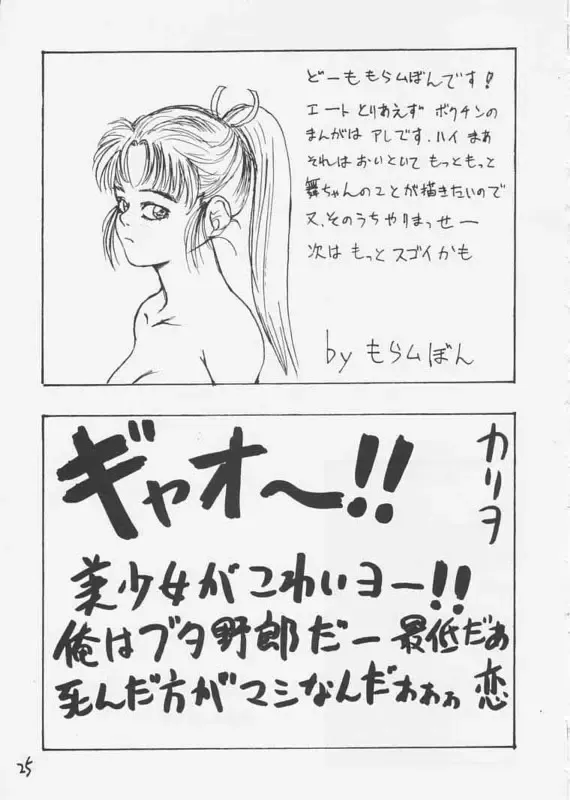 どーももらムぼんです!
エートとりあえず ボクチンの
まんがは アレです.ハイ まあ
それはおいといて もっともっと
舞ちゃんのことが描きたいので
又、そのうちやりまっせー
次は もっと スゴイかも
by もらムぼん
カリヲ
ギャオ〜!!
美少女がこわいヨー!!
俺はブタ野郎だー 最低だぁ
死んだ方がマシなんだぁぁぁ 恋
25